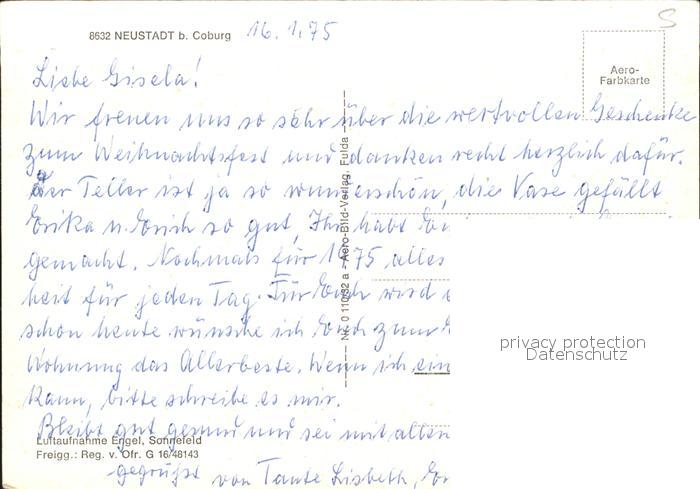 8632 NEUSTADT b. Coburg 16.1.75
S
Aero-
Farbkarte
Liebe Gisela!
Wir freuen uns so sehr über die wertvollen Geschenke
zum Weihnachtsfest und danken recht herzlich dafür.
Der Teller ist ja so wunderschön, die Vase gefällt
Erika u. Erich so gut, Ihr habt
gemacht. Nochmals für 1975 alles
heit für jeden Tag. Für Euch wird
schon heute wünsche ich Euch zum
Wohnung das Allerbeste. Wenn ich ein
kann, bitte schreibe es mir.
Bleibt gut gesund und sei mit allen
gegrüßt von Tante Lisbeth,
Nr. 0 110/32 a - Aero-Bild-Verlag, Fulda
Luftaufnahme Engel, Sonnefeld
Freigg.: Reg. v. Ofr. G 16/48143
privacy protection
Datenschutz